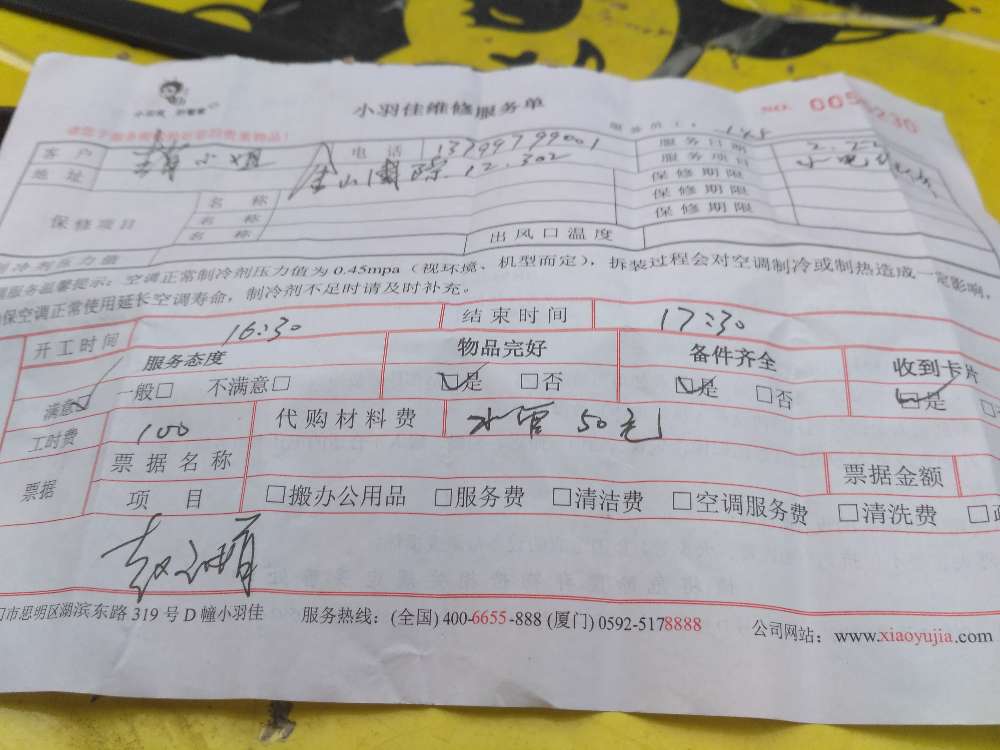 小羽佳维修服务单
客户 小姐 电话 13799799001 服务日期 2.22
地址 金山国际12.302 服务项目
保修项目 名称 保修期限
名称 保修期限
名称 保修期限
制冷剂压力值 出风口温度
服务温馨提示：空调正常制冷剂压力值为0.45mpa（视环境、机型而定），拆装过程会对空调制冷或制热造成一定影响，
保空调正常使用延长空调寿命，制冷剂不足时请及时补充。
开工时间 16:30 结束时间 17:30
服务态度 物品完好 备件齐全 收到卡片
满意☑ 一般□ 不满意□ ☑是 □否 ☑是 □否 ☑是
工时费 100 代购材料费 水管 50元
票据 票据名称 票据金额
项目 □搬办公用品 □服务费 □清洁费 □空调服务费 □清洗费
门市思明区湖滨东路 319 号 D 幢小羽佳 服务热线：(全国) 400-6655-888 (厦门) 0592-5178888 公司网站：www.xiaoyujia.com